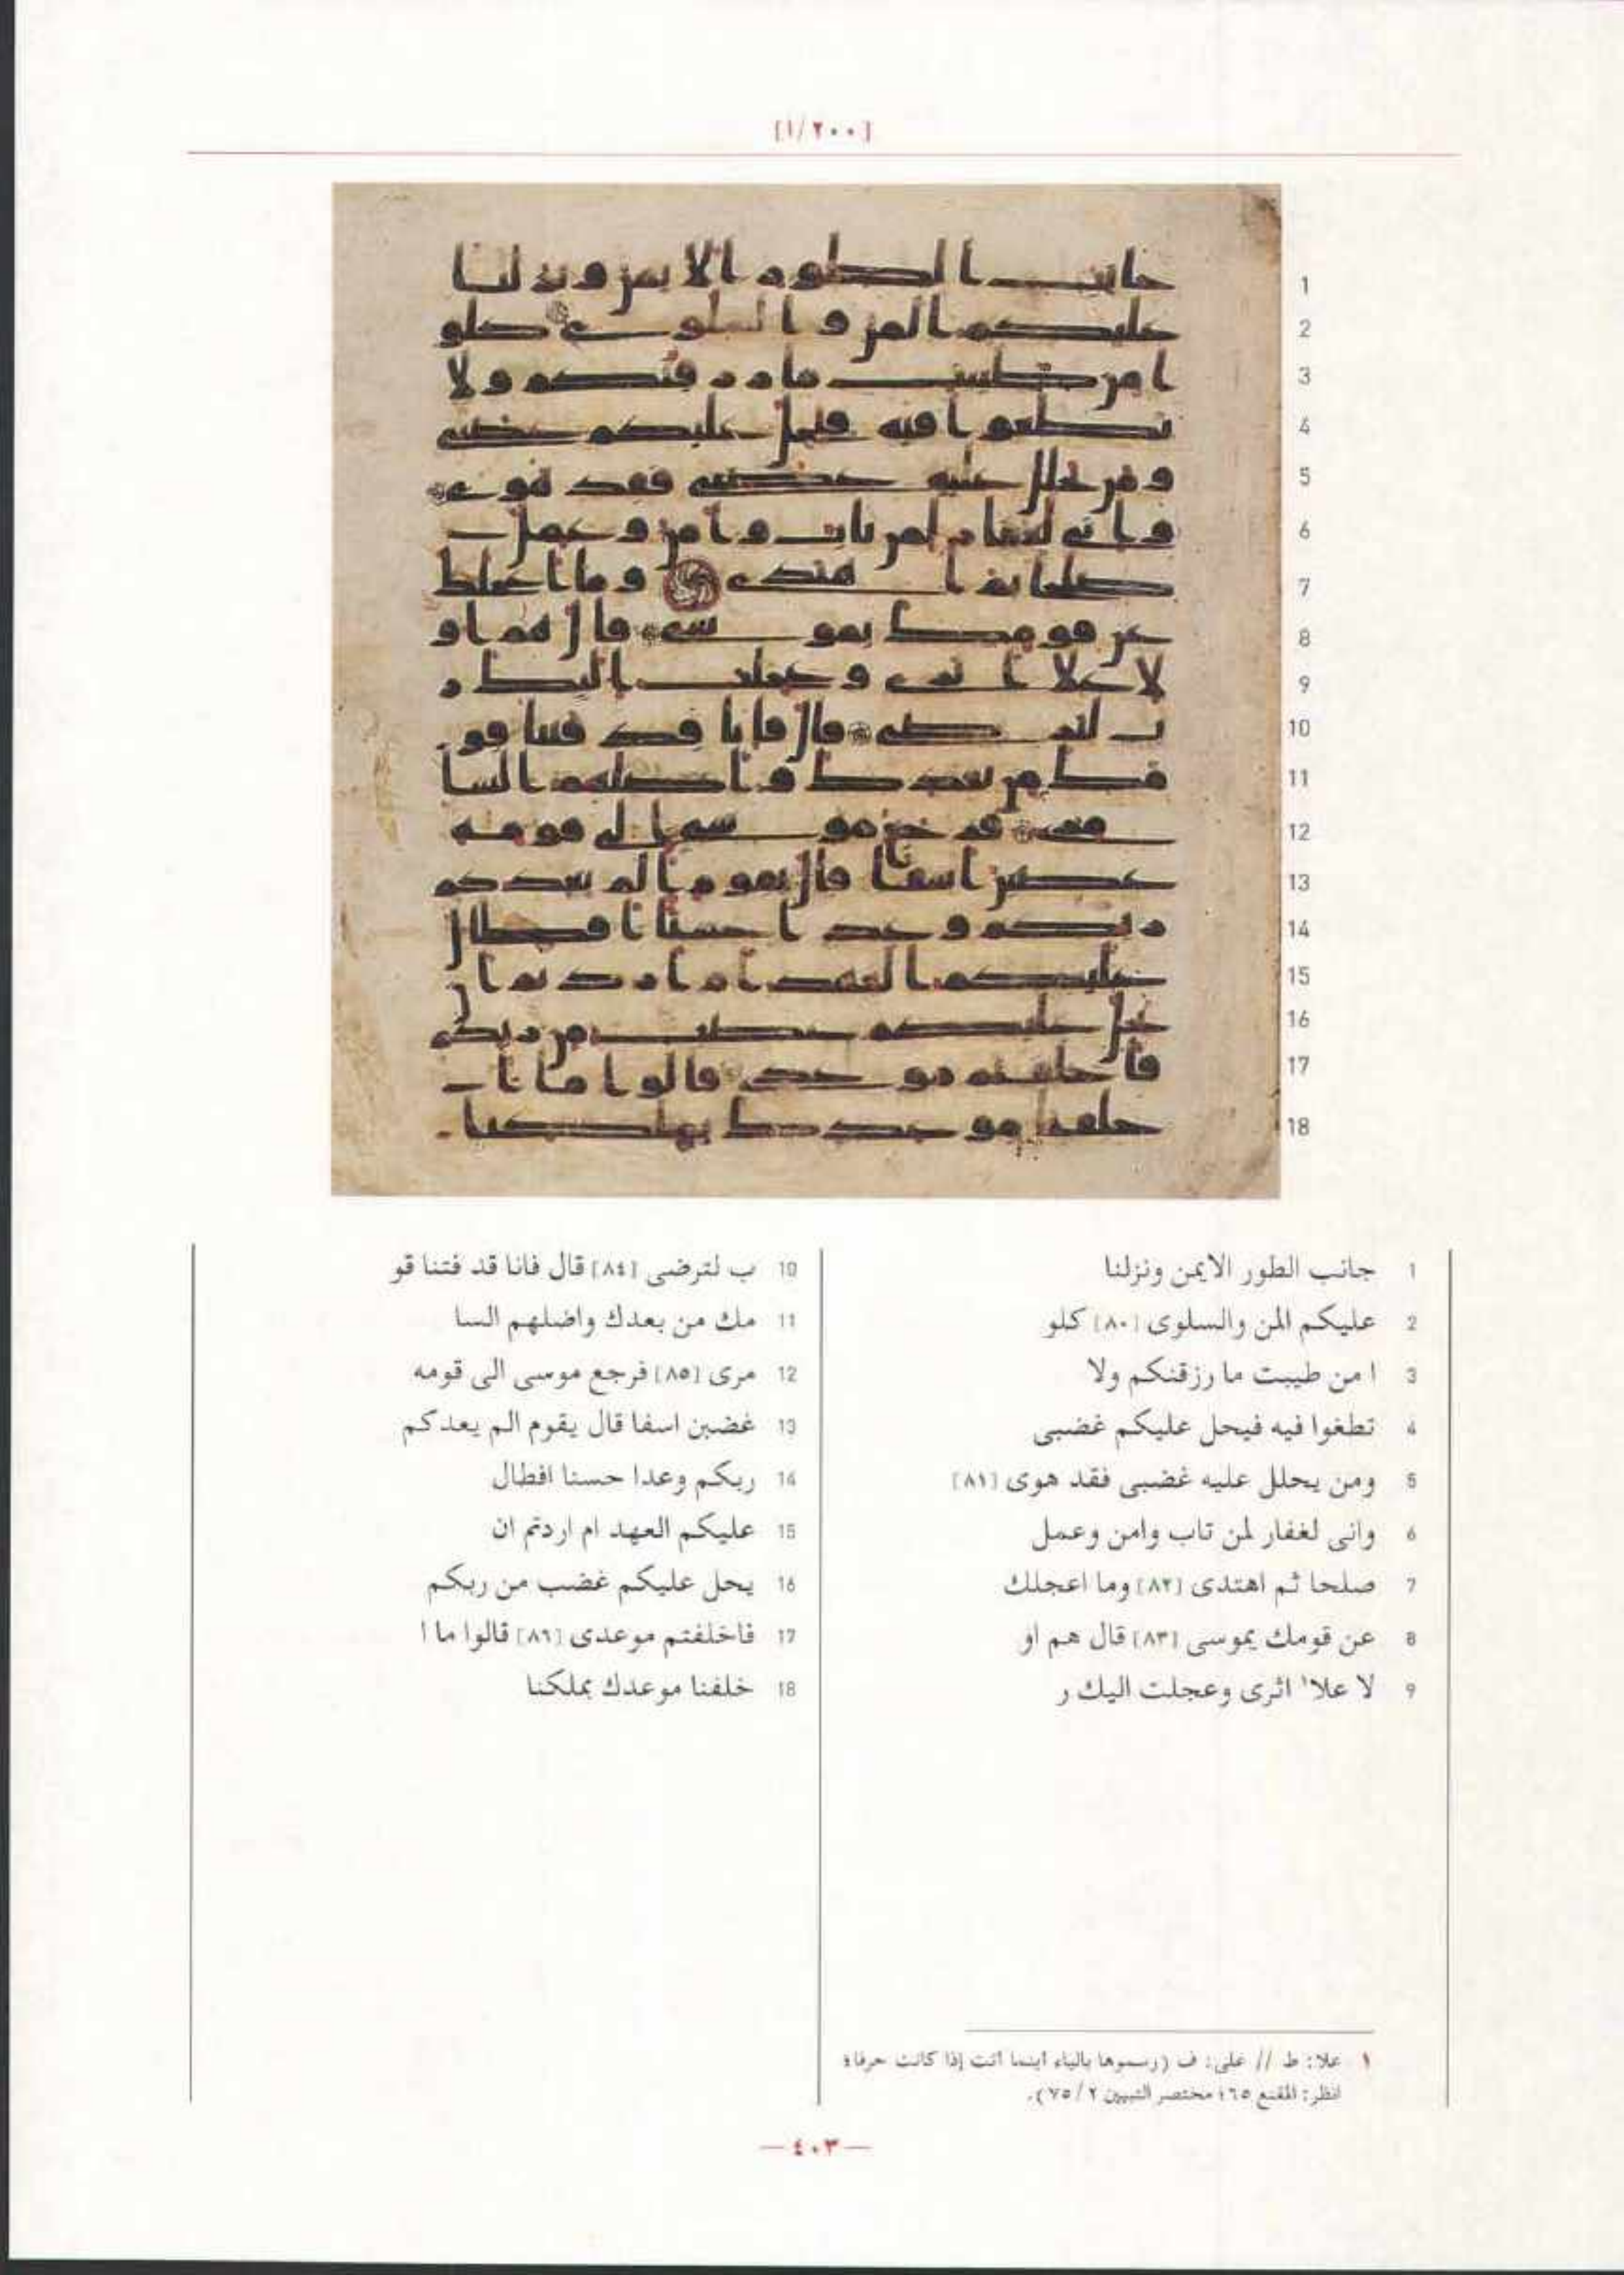 [١/٢٠٠]
1 جانب الطور الايمن ونزلنا
2 عليكم المن والسلوى [٨٠] كلو
3 ا من طيبت ما رزقنكم ولا
4 تطغوا فيه فيحل عليكم غضبى
5 ومن يحلل عليه غضبى فقد هوى [٨١]
6 وانى لغفار لمن تاب وامن وعمل
7 صلحا ثم اهتدى [٨٢] وما اعجلك
8 عن قومك يموسى [٨٣] قال هم او
9 لا علا١ اثرى وعجلت اليك ر
10 ب لترضى [٨٤] قال فانا قد فتنا قو
11 مك من بعدك واضلهم السا
12 مرى [٨٥] فرجع موسى الى قومه
13 غضبن اسفا قال يقوم الم يعدكم
14 ربكم وعدا حسنا افطال
15 عليكم العهد ام اردتم ان
16 يحل عليكم غضب من ربكم
17 فاخلفتم موعدى [٨٦] قالوا ما ا
18 خلفنا موعدك بملكنا
١ علا: ط // على: ف (رسموها بالياء أينما أتت إذا كانت حرفا؛
انظر: المقنع ٦٥؛ مختصر التبيين ٢/ ٧٥).
— ٤٠٣ —